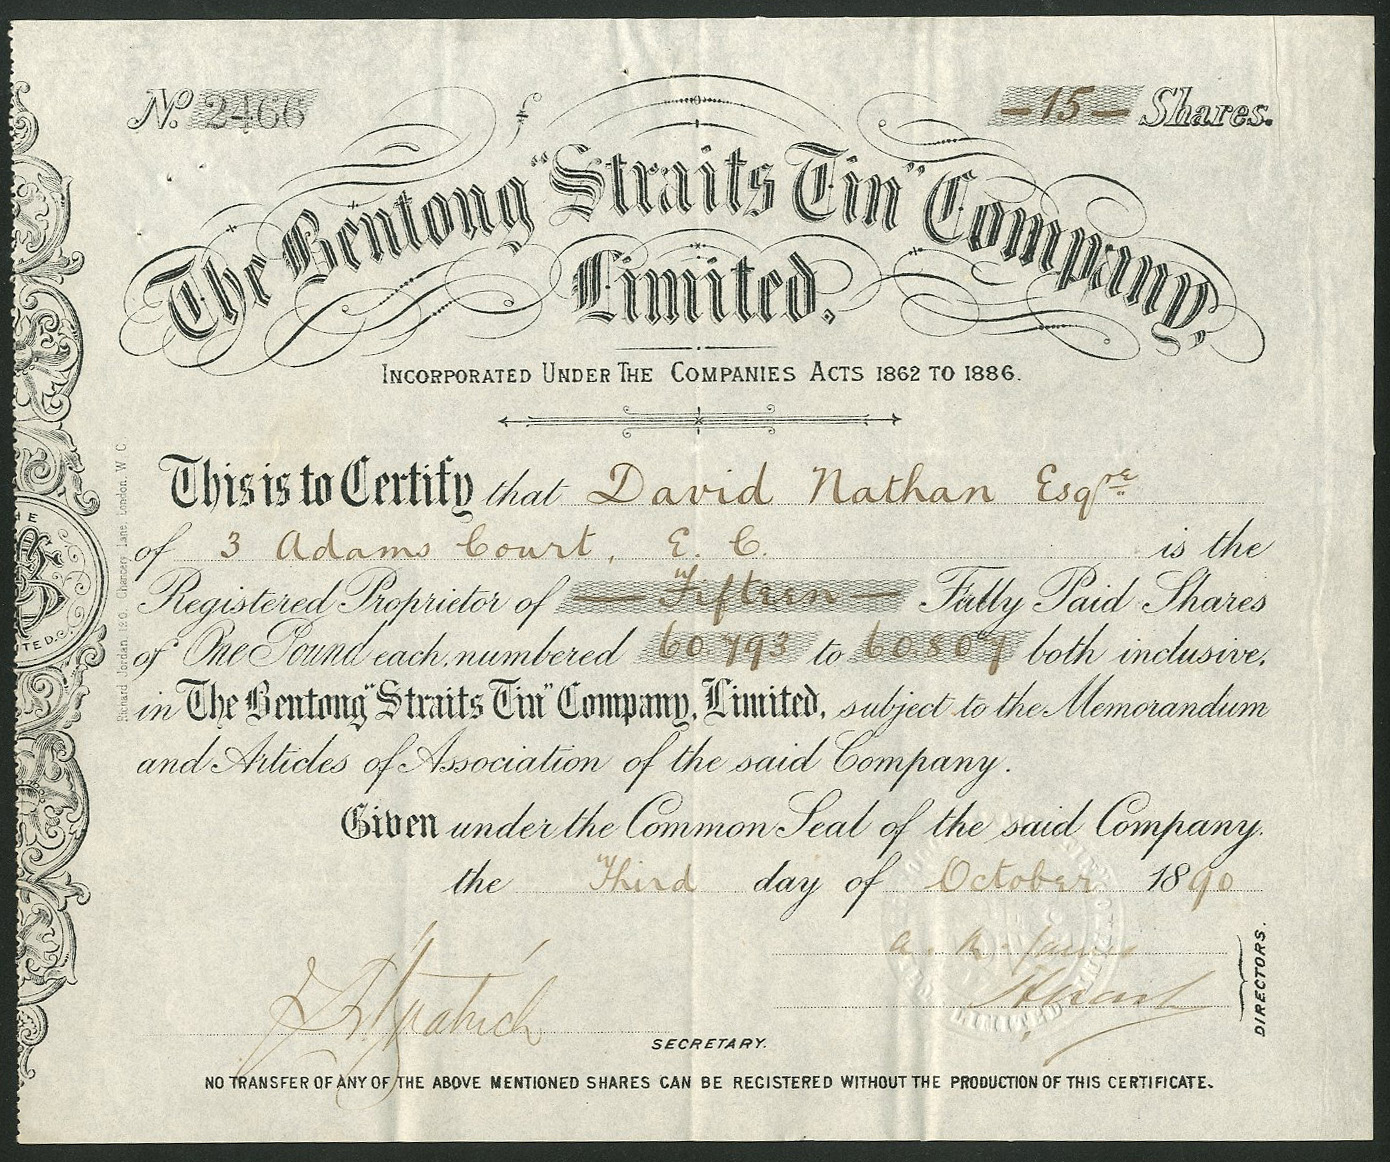 No. 2466 -15- Shares.
The Bentong "Straits Tin" Company,
Limited.
INCORPORATED UNDER THE COMPANIES ACTS 1862 TO 1886.
This is to Certify that David Nathan Esqre
of 3 Adams Court, E. C. is the
Registered Proprietor of — Fifteen — Fully Paid Shares
of One Pound each, numbered 60793 to 60807 both inclusive,
in The Bentong "Straits Tin" Company, Limited, subject to the Memorandum
and Articles of Association of the said Company.
Given under the Common Seal of the said Company,
the Third day of October 1890
DIRECTORS.
SECRETARY.
NO TRANSFER OF ANY OF THE ABOVE MENTIONED SHARES CAN BE REGISTERED WITHOUT THE PRODUCTION OF THIS CERTIFICATE.
Richard Jordan, 120, Chancery Lane, London, W.C.
LIMITED